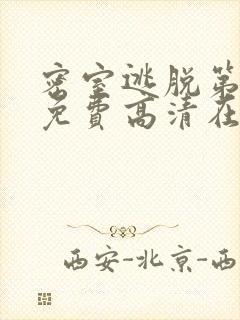 密室逃脱第
免費高清在
西安-北京-西